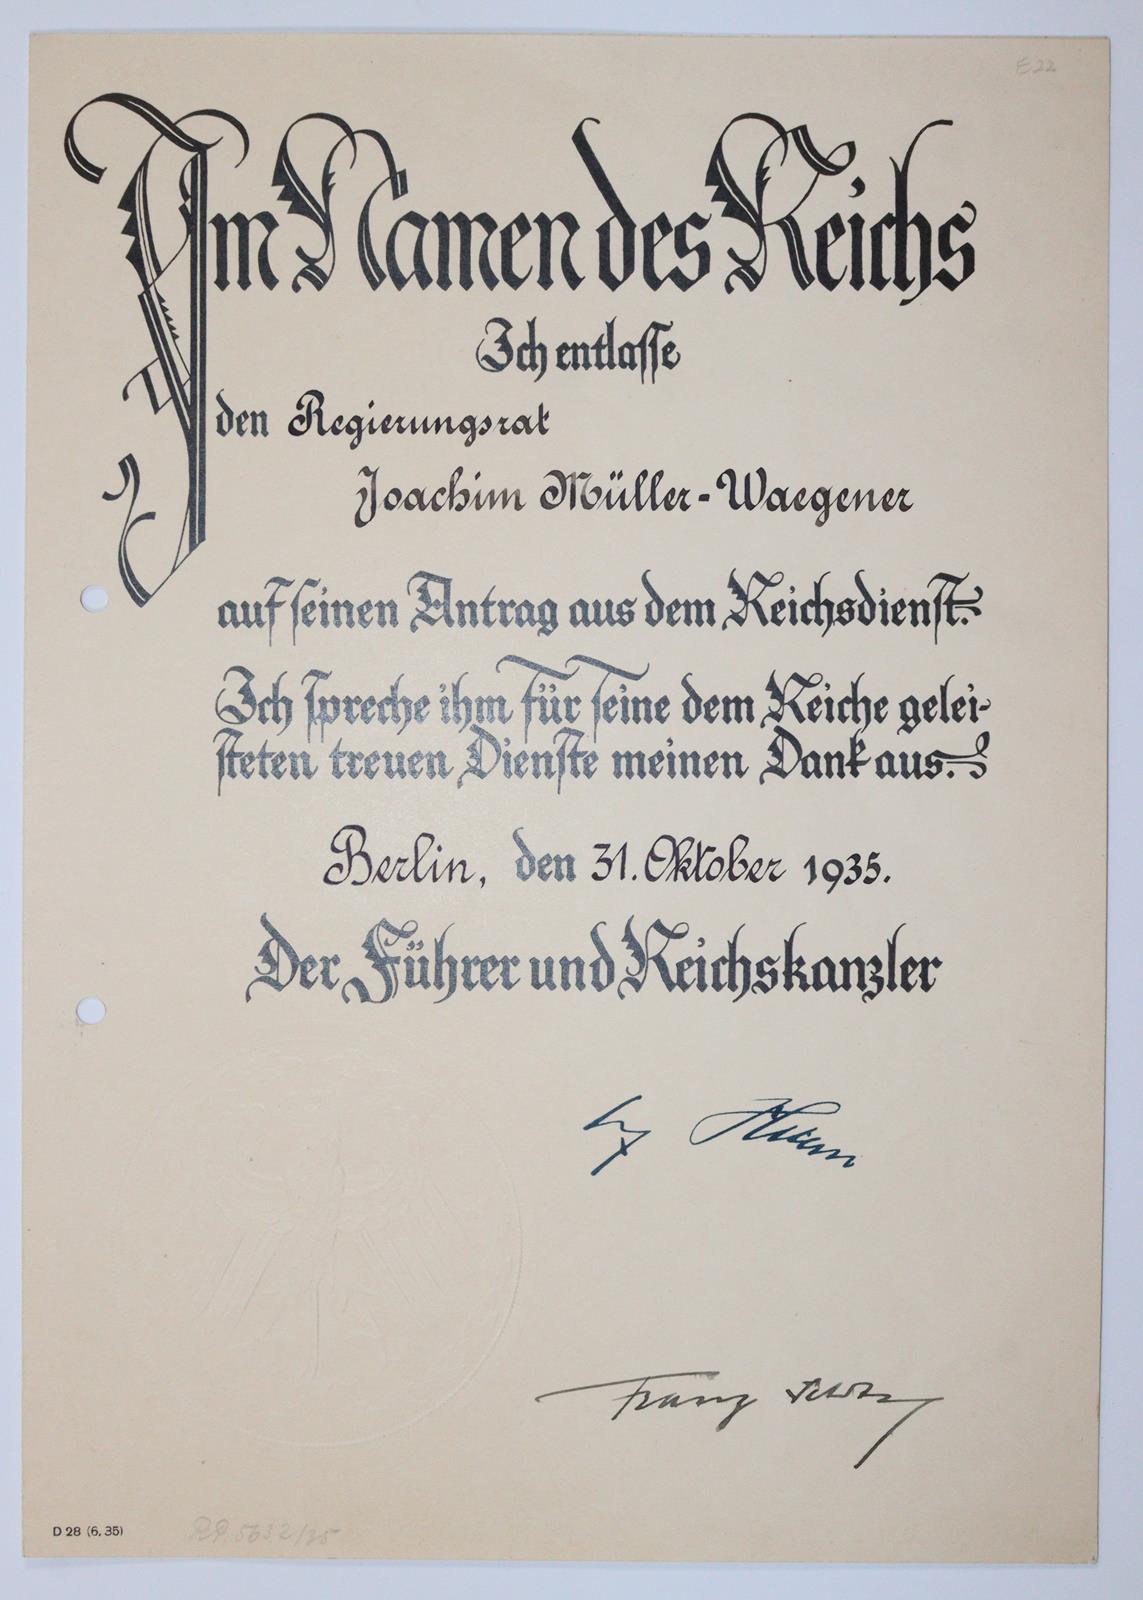 E 22
Im Namen des Reichs
Ich entlasse
den Regierungsrat
Joachim Müller-Waegener
auf seinen Antrag aus dem Reichsdienst.
Ich spreche ihm für seine dem Reiche gelei-
steten treuen Dienste meinen Dank aus.
Berlin, den 31. Oktober 1935.
Der Führer und Reichskanzler
Franz
D 28 (6. 35)
5632/35